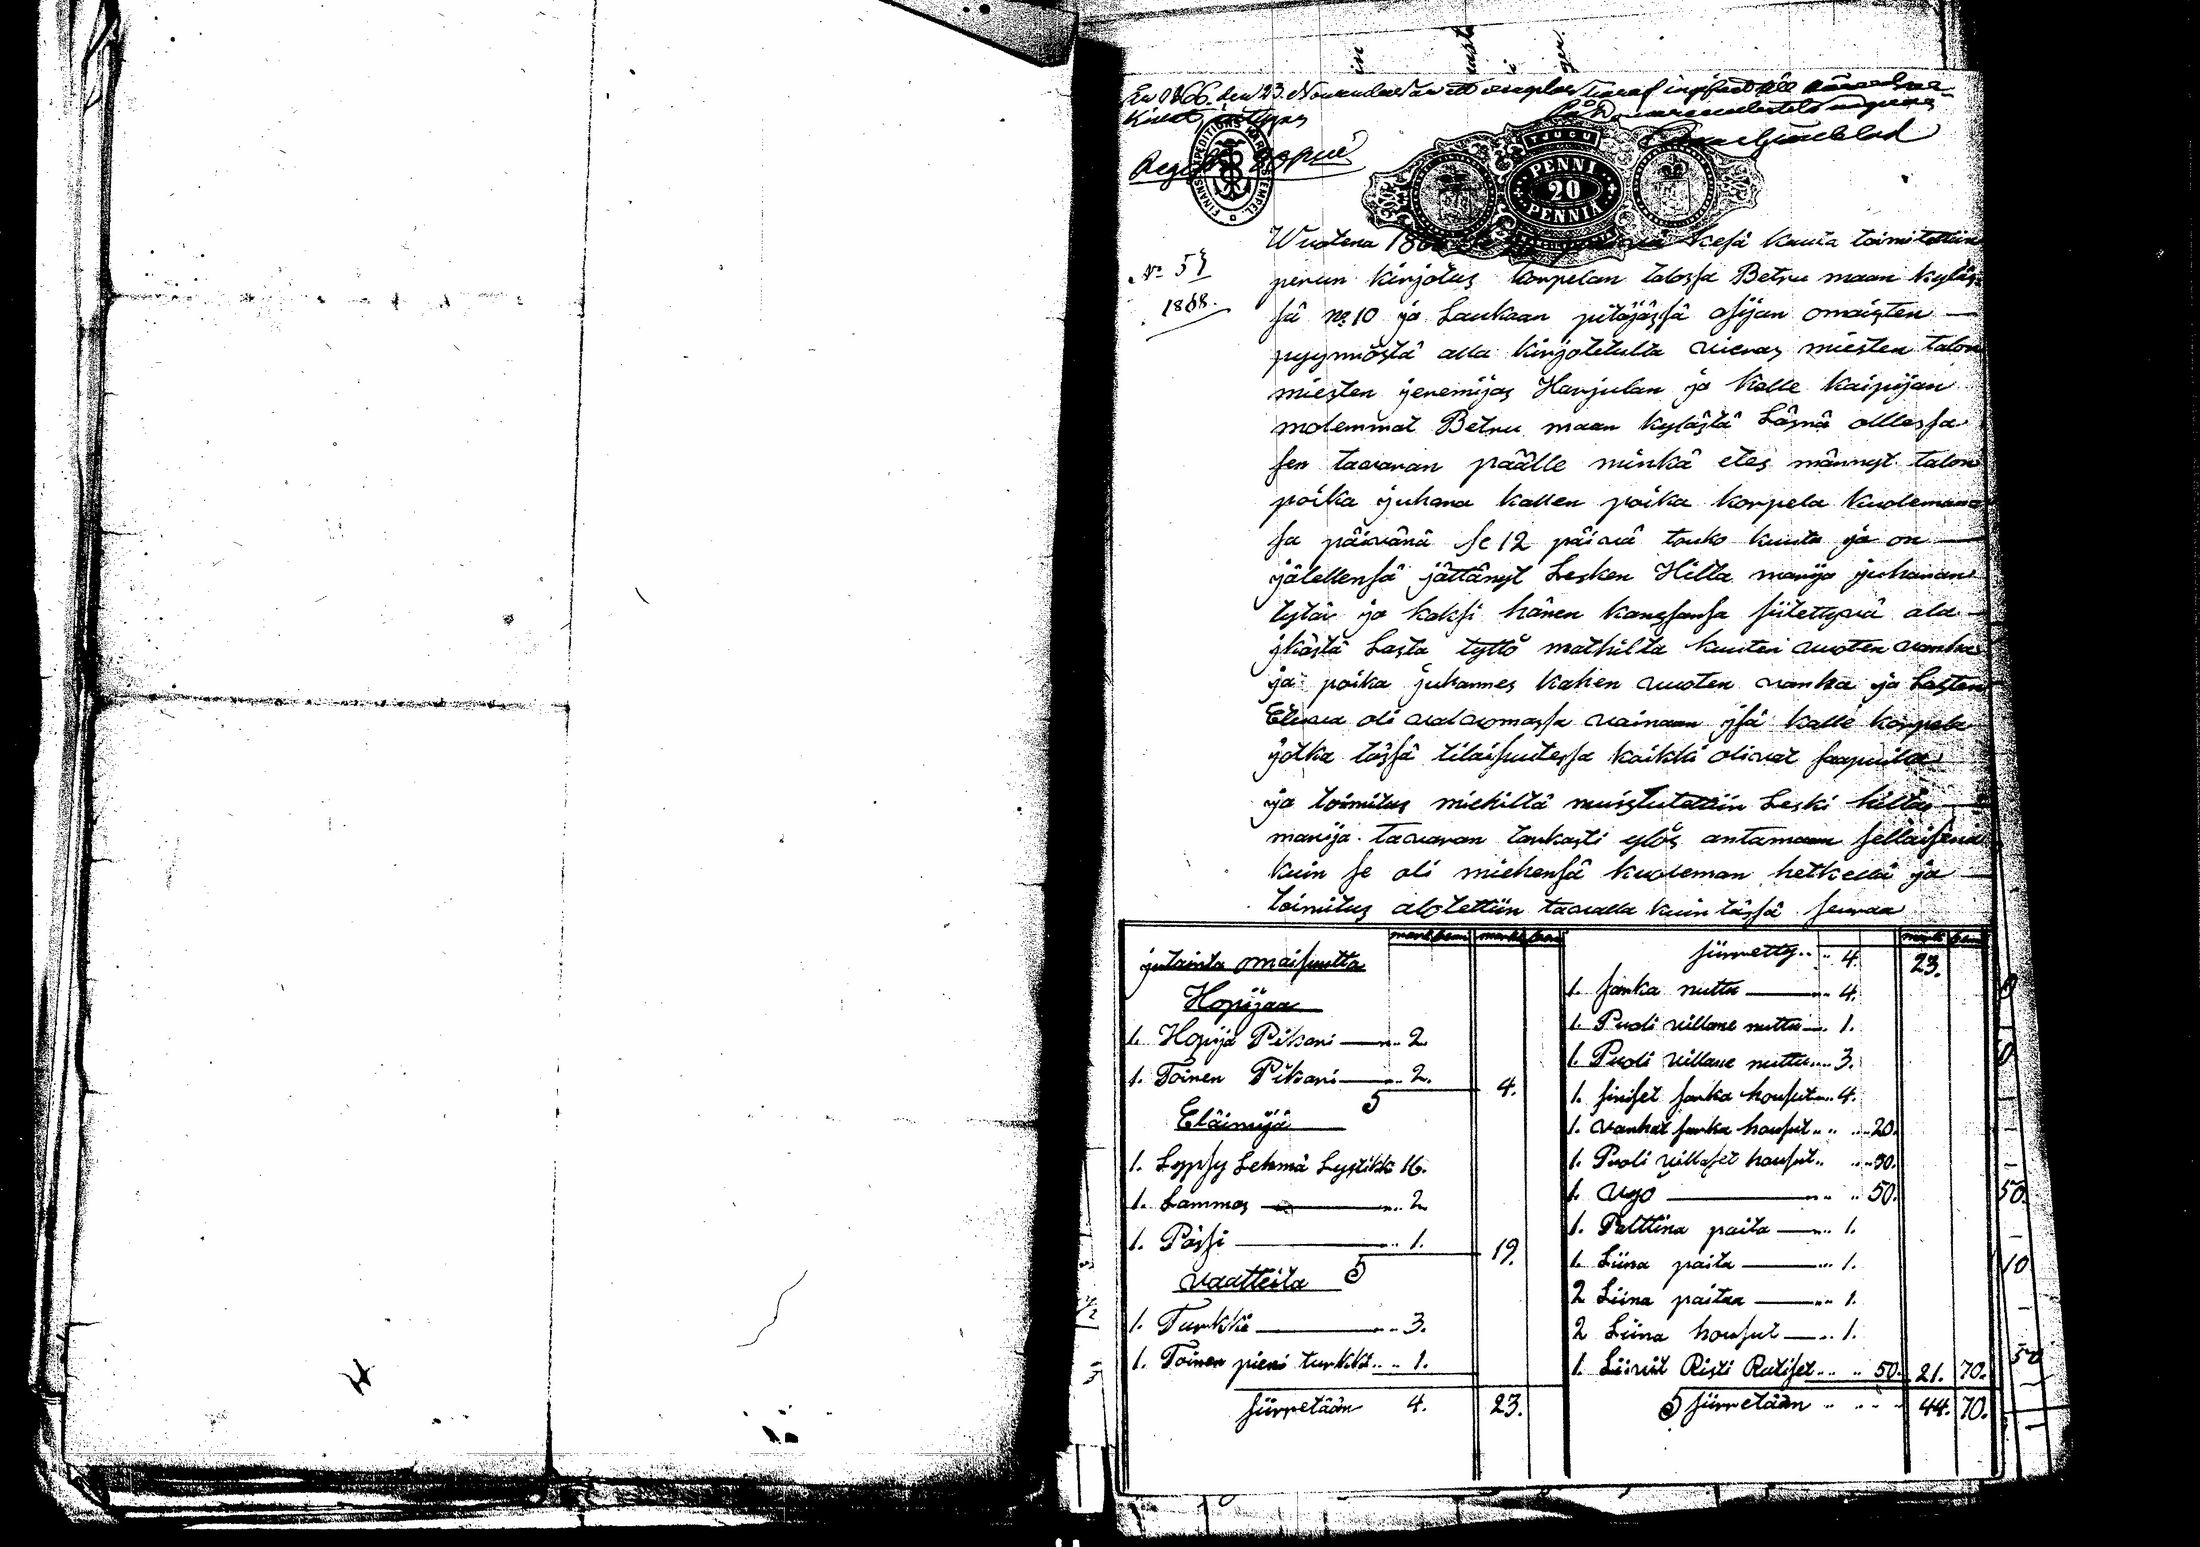 År 1866 den 23 November är ett exemplar häraf ingifvet till
TJUGU
PENNI
20
PENNIÄ
FINANS EXPEDITIONS CHARTÆ STEMPEL
№ 57
1868.
Wuotena kesä kuuta toimitettiin
perun kirjotus korpelan talossa Betru maan kyläs-
sä № 10 ja Laukaan pitäjässä asijan omaisten
pyynnöstä alla kirjotetulta vieras miesten talon
miesten jeremijas Harjulan ja kalle kaipijan
molemmat Betru maan kylästä Läsnä olllessa
sen tavaran päälle minkä etes männyt talon
poika juhana kallen poika korpela kuolemans
sa päivänä se 12 päivä touko kuuta ja on
jälellensä jättänyt Lesken Hilta marija juhanan
tytär ja kaksi hänen kanssansa siitettyvä ala
jkästä Lasta tyttö mathilta kuuten vuoten vanha
ja poika juhannes kahen vuoten vanha ja Lasten
Etuva oli valvomassa vainaan jsä kalle korpela
jotka tässä tilaisuutessa kaikki olivat saapuilla
ja toimitus miehiltä muistutettiin Leski hilta
marija tavaran tarkasti ylös antamaan sellaisena
kuin se oli miehensä kuoleman hetkellä ja
toimitus alotettiin tavalla kuin tässä seuraa
jrtainta omaisuutta
Hopijaa
1. Hopija Pikari 2.
1. Toinen Pikari 2. 4.
5
Eläimijä
1. Lypsy Lehmä Lystikki 16.
1. Lammas 2.
1. Pässi 1. 19.
5
vaatteita
1. Turkki 3.
1. Toinen pieni turkki 1.
siirretään 4. 23.
siirretty 4. 23.
1. sarka nuttu 4.
1. Puoli villane nuttu 1.
1. Puoli villane nuttu 3.
1. siniset sarka housut 4.
1. vanhat sarka housut 20.
1. Puoli villaset housut 50.
1. vyö 50.
1. Palttina paita 1.
1. Liina paita 1.
2 Liina paitaa 1.
2 Liina housut 1.
1. Liivit Risti Ratiset 50. 21. 70.
5 siirretään 44. 70.
50.
10
50